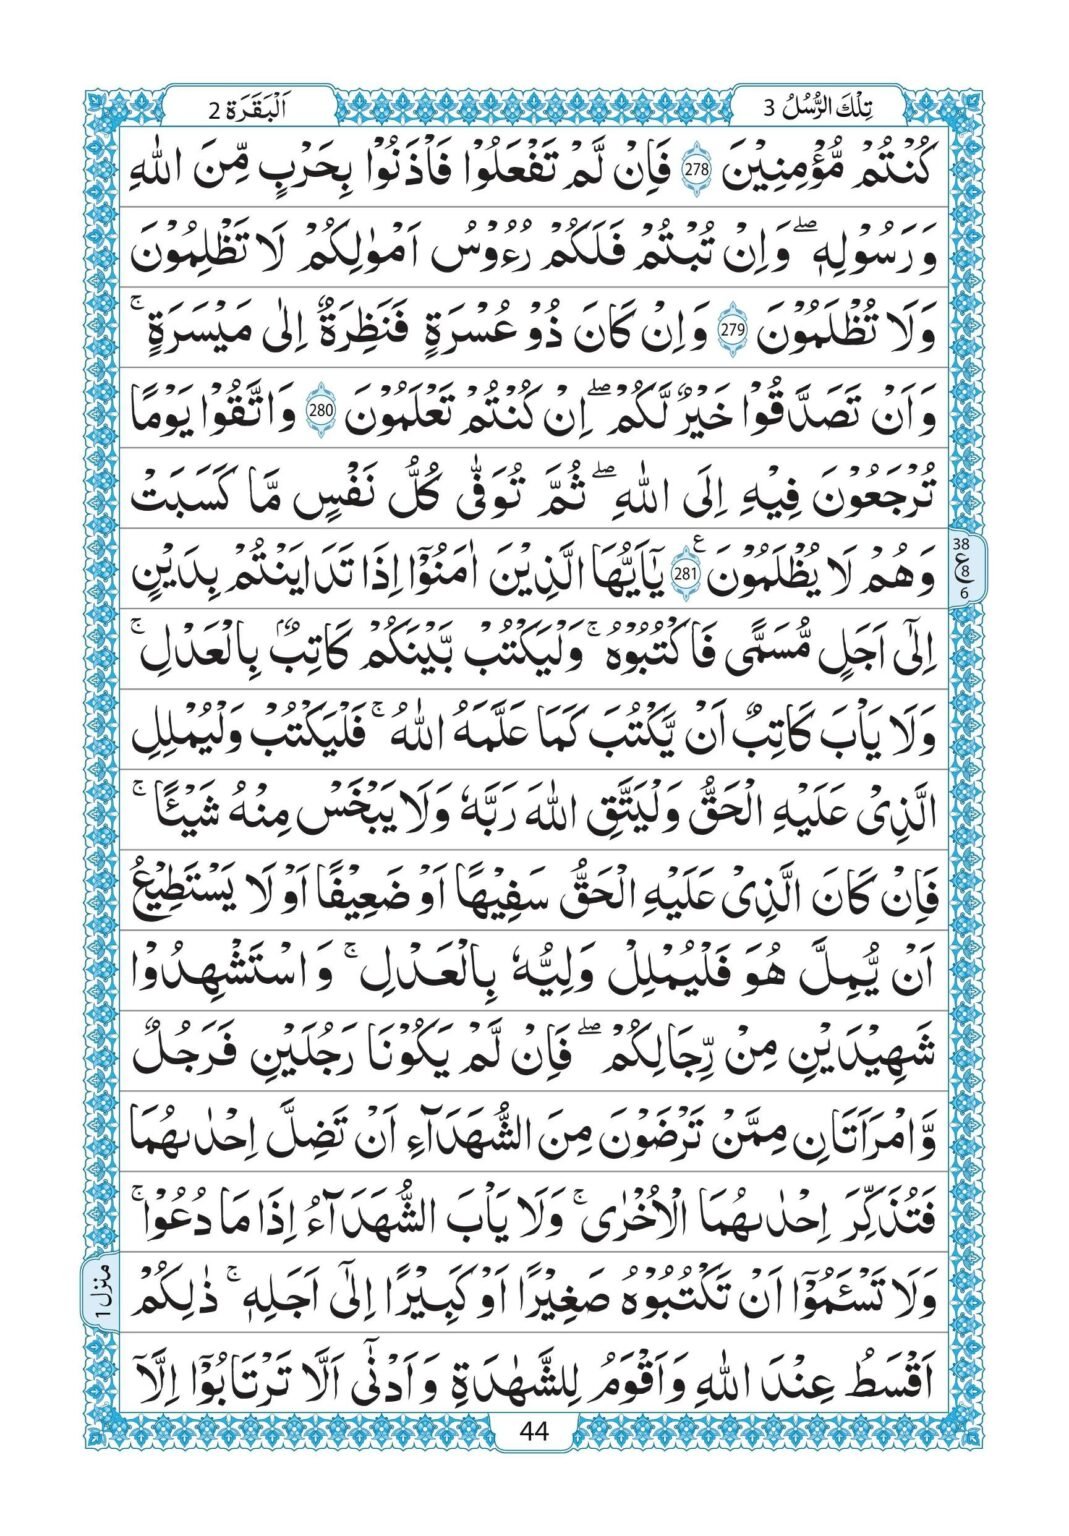 تِلْكَ الرُّسُلُ 3
اَلْبَقَرَة 2
كُنْتُمْ مُّؤْمِنِيْنَ 278 فَاِنْ لَّمْ تَفْعَلُوْا فَاْذَنُوْا بِحَرْبٍ مِّنَ اللّٰهِ
وَرَسُوْلِهٖ ۖ وَاِنْ تُبْتُمْ فَلَكُمْ رُءُوْسُ اَمْوٰلِكُمْ لَا تَظْلِمُوْنَ
وَلَا تُظْلَمُوْنَ 279 وَاِنْ كَانَ ذُوْ عُسْرَةٍ فَنَظِرَةٌ اِلٰى مَيْسَرَةٍ ۚ
وَاَنْ تَصَدَّقُوْا خَيْرٌ لَّكُمْ ۖ اِنْ كُنْتُمْ تَعْلَمُوْنَ 280 وَاتَّقُوْا يَوْمًا
تُرْجَعُوْنَ فِيْهِ اِلَى اللّٰهِ ۖ ثُمَّ تُوَفّٰى كُلُّ نَفْسٍ مَّا كَسَبَتْ
وَهُمْ لَا يُظْلَمُوْنَ 281 ع يٰٓاَيُّهَا الَّذِيْنَ اٰمَنُوْٓا اِذَا تَدَايَنْتُمْ بِدَيْنٍ
38
ع
8
6
اِلٰٓى اَجَلٍ مُّسَمًّى فَاكْتُبُوْهُ ۚ وَلْيَكْتُبْ بَّيْنَكُمْ كَاتِبٌۢ بِالْعَدْلِ ۚ
وَلَا يَاْبَ كَاتِبٌ اَنْ يَّكْتُبَ كَمَا عَلَّمَهُ اللّٰهُ ۚ فَلْيَكْتُبْ وَلْيُمْلِلِ
الَّذِيْ عَلَيْهِ الْحَقُّ وَلْيَتَّقِ اللّٰهَ رَبَّهٗ وَلَا يَبْخَسْ مِنْهُ شَيْـًٔا ۚ
فَاِنْ كَانَ الَّذِيْ عَلَيْهِ الْحَقُّ سَفِيْهًا اَوْ ضَعِيْفًا اَوْ لَا يَسْتَطِيْعُ
اَنْ يُّمِلَّ هُوَ فَلْيُمْلِلْ وَلِيُّهٗ بِالْعَدْلِ ۚ وَاسْتَشْهِدُوْا
شَهِيْدَيْنِ مِنْ رِّجَالِكُمْ ۖ فَاِنْ لَّمْ يَكُوْنَا رَجُلَيْنِ فَرَجُلٌ
وَّامْرَاَتَانِ مِمَّنْ تَرْضَوْنَ مِنَ الشُّهَدَآءِ اَنْ تَضِلَّ اِحْدٰىهُمَا
فَتُذَكِّرَ اِحْدٰىهُمَا الْاُخْرٰى ۚ وَلَا يَاْبَ الشُّهَدَآءُ اِذَا مَا دُعُوْا ۚ
وَلَا تَسْـَٔمُوْٓا اَنْ تَكْتُبُوْهُ صَغِيْرًا اَوْ كَبِيْرًا اِلٰٓى اَجَلِهٖ ۚ ذٰلِكُمْ
منزل 1
اَقْسَطُ عِنْدَ اللّٰهِ وَاَقْوَمُ لِلشَّهٰدَةِ وَاَدْنٰٓى اَلَّا تَرْتَابُوْٓا اِلَّآ
44